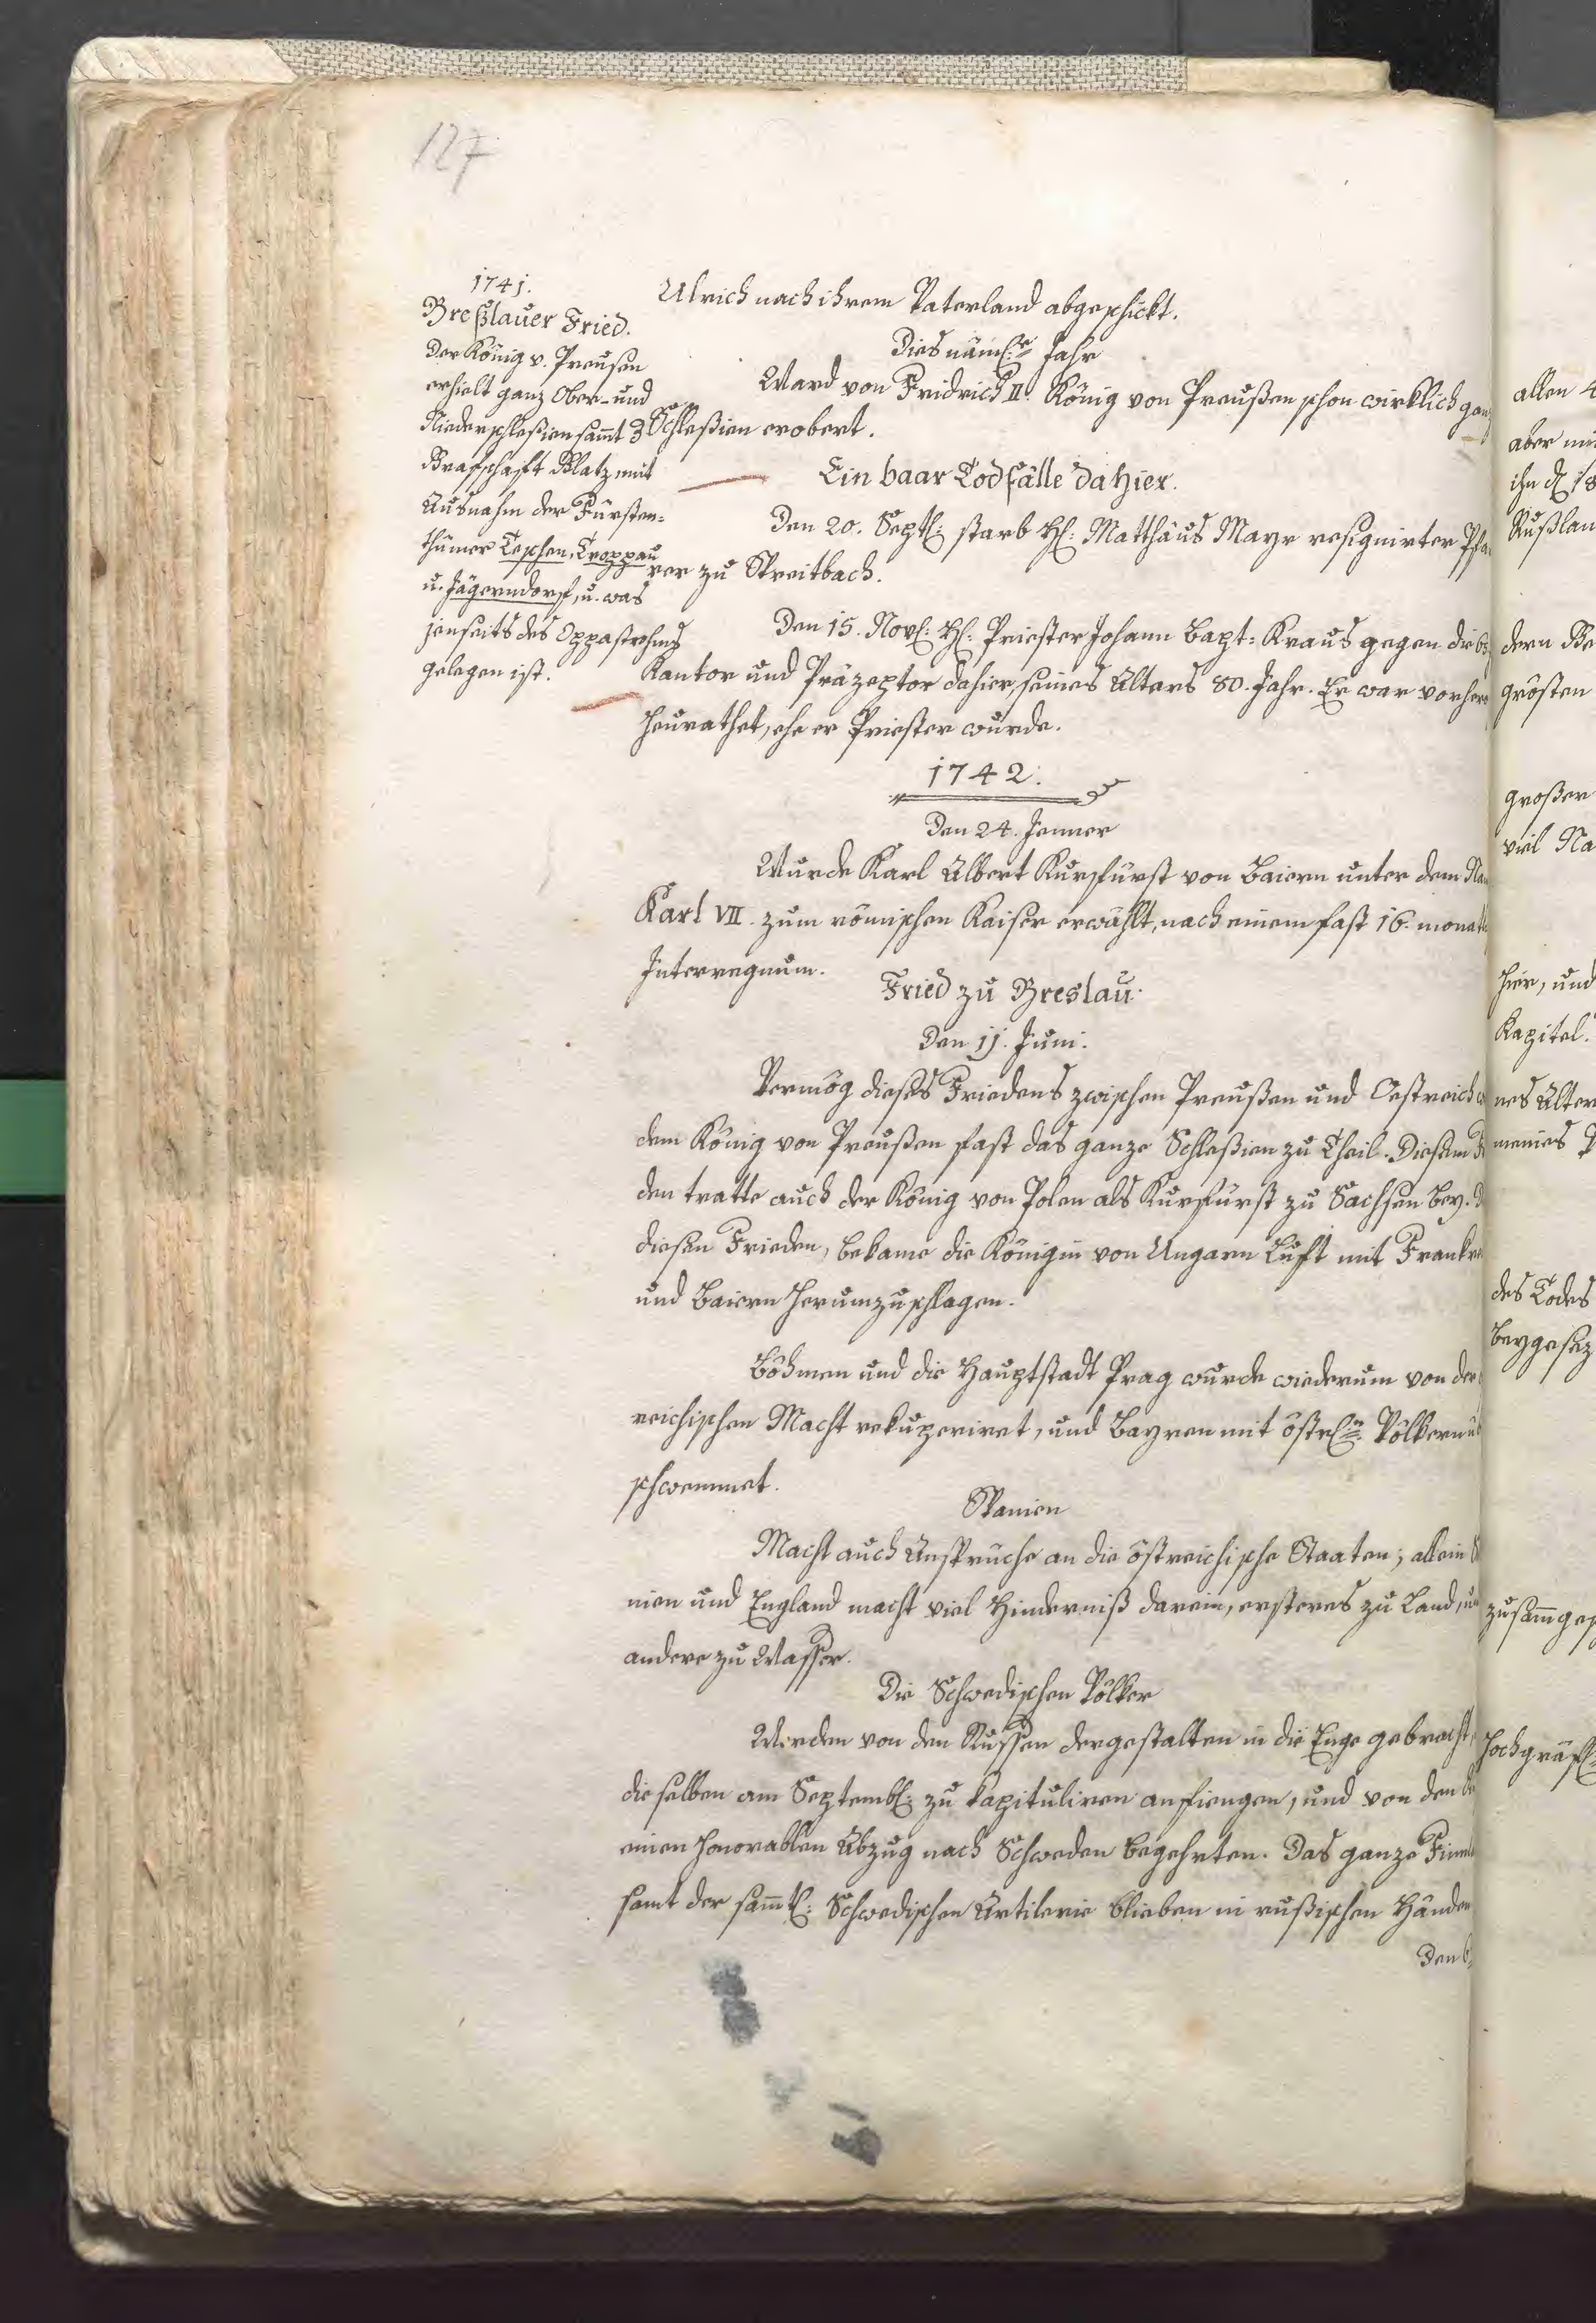 127
1741.
Breßlauer Fried.
Der König v. Preusen
erhielt ganz Ober- und
Niederschleßien samt
Grafschaft Glatz mit
Ausnahm der Fürsten-
thümer Teschen, Troppau
u. Jägerndorf, u. was
jenseits des Oppastrohms
gelegen ist.
Ulrich nach ihrem Vaterland abgeschickt.
Dies näml: Jahr
Ward von Fridrich II. König von Preußen schon wirklich ganz
Schleßien erobert.
Ein baar Todfälle dahier.
Den 20. Sept: starb H: Matthäus Mayr resignirter Pfar
rer zu Spreitbach.
Den 15. Nov: H: Priester Johann Bapt: Kraus gegen
Kantor und Präzeptor dahier, seines Alters 80. Jahr. Er war vorher
heurathet, ehe er Priester wurde.
1742.
Den 24. Jenner
Wurde Karl Albert Kurfürst von Baiern unter dem
Karl VII. zum römischen Kaiser erwählt, nach einem fast 16. monatl
Interregnum.
Fried zu Breslau.
Den 11. Juni.
Vermög dieses Friedens zwischen Preußen und Oestreich
dem König von Preußen fast das ganze Schleßien zu Theil. Diesem
den tratte auch der König von Polen als Kurfürst zu Sachsen bey.
diesen Frieden, bekame die Königin von Ungarn Luft mit Frankre
und Baiern herumzuschlagen.
Böhmen und die Hauptstadt Prag wurde wiederum von der
reichischen Macht rekuperiret, und Bayren mit östr: Völkern
schwemmet.
Spanien
Macht auch Ansprüche an die östreichische Staaten; allein
nien und England macht viel Hinderniß darein, ersteres zu Land,
andere zu Wasser.
Die Schwedischen Völker
Werden von den Russen dergestalten in die Enge gebracht,
dieselben am Septemb: zu kapituliren anfiengen, und von den
einen honorablen Abzug nach Schweden begehrten. Das ganze Finnl
samt der sammtl: Schwedischen Artilerie blieben in rußischen Händen
Den
allen
aber
ihn
Rußlan
dern
grösten
großer
viel Na
hier, und
Kapitel.
nes Alter
des Todes
beygesez
zusammges
hochgräfl